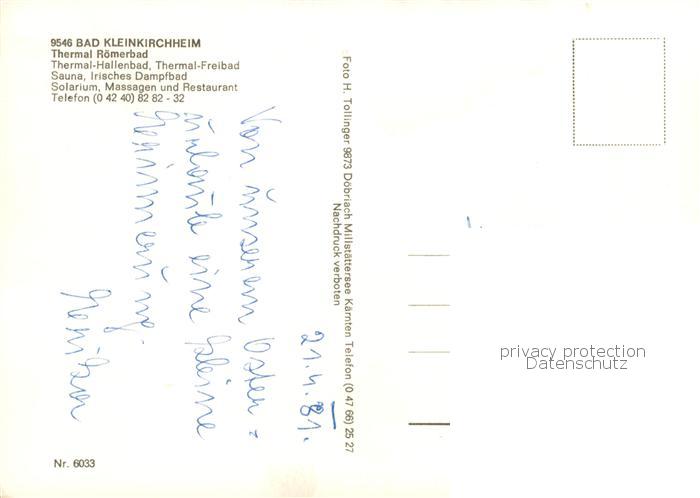 9546 BAD KLEINKIRCHHEIM
Thermal Römerbad
Thermal-Hallenbad, Thermal-Freibad
Sauna, Irisches Dampfbad
Solarium, Massagen und Restaurant
Telefon (0 42 40) 82 82 - 32
21.4.81.
Von unserem Oster=
urlaub eine kleine
Erinnerung
Foto H. Tollinger 9873 Döbriach Millstättersee Kärnten Telefon (0 47 66) 25 27
Nachdruck verboten
privacy protection
Datenschutz
Nr. 6033